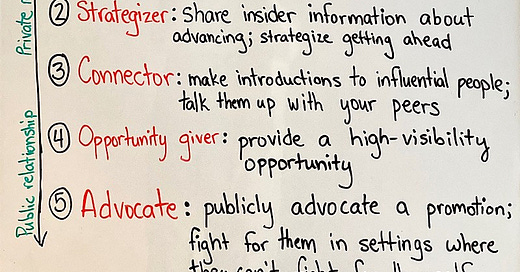 ② Strategizer: share insider information about
advancing; strategize getting ahead
③ Connector: make introductions to influential people;
talk them up with your peers
④ Opportunity giver: provide a high-visibility
opportunity
⑤ Advocate: publicly advocate a promotion;
fight for them in settings where
they can't fight for
Private
Public relationship